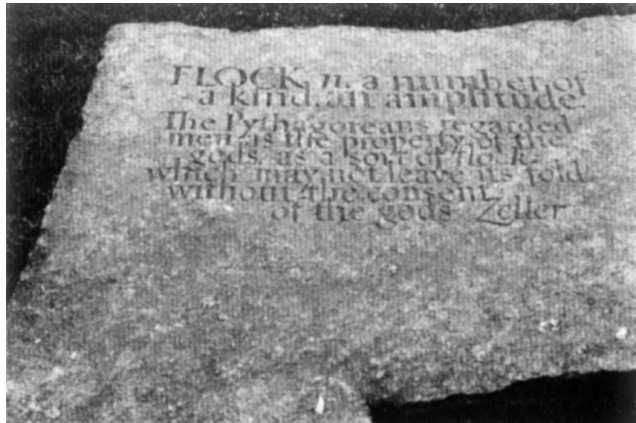 FLOCK, n. a number of
a kind, an amplitude.
The Pythagoreans regarded
men as the property of the
gods, as a sort of flock,
which may not leave its fold
without the consent
of the gods Zeller